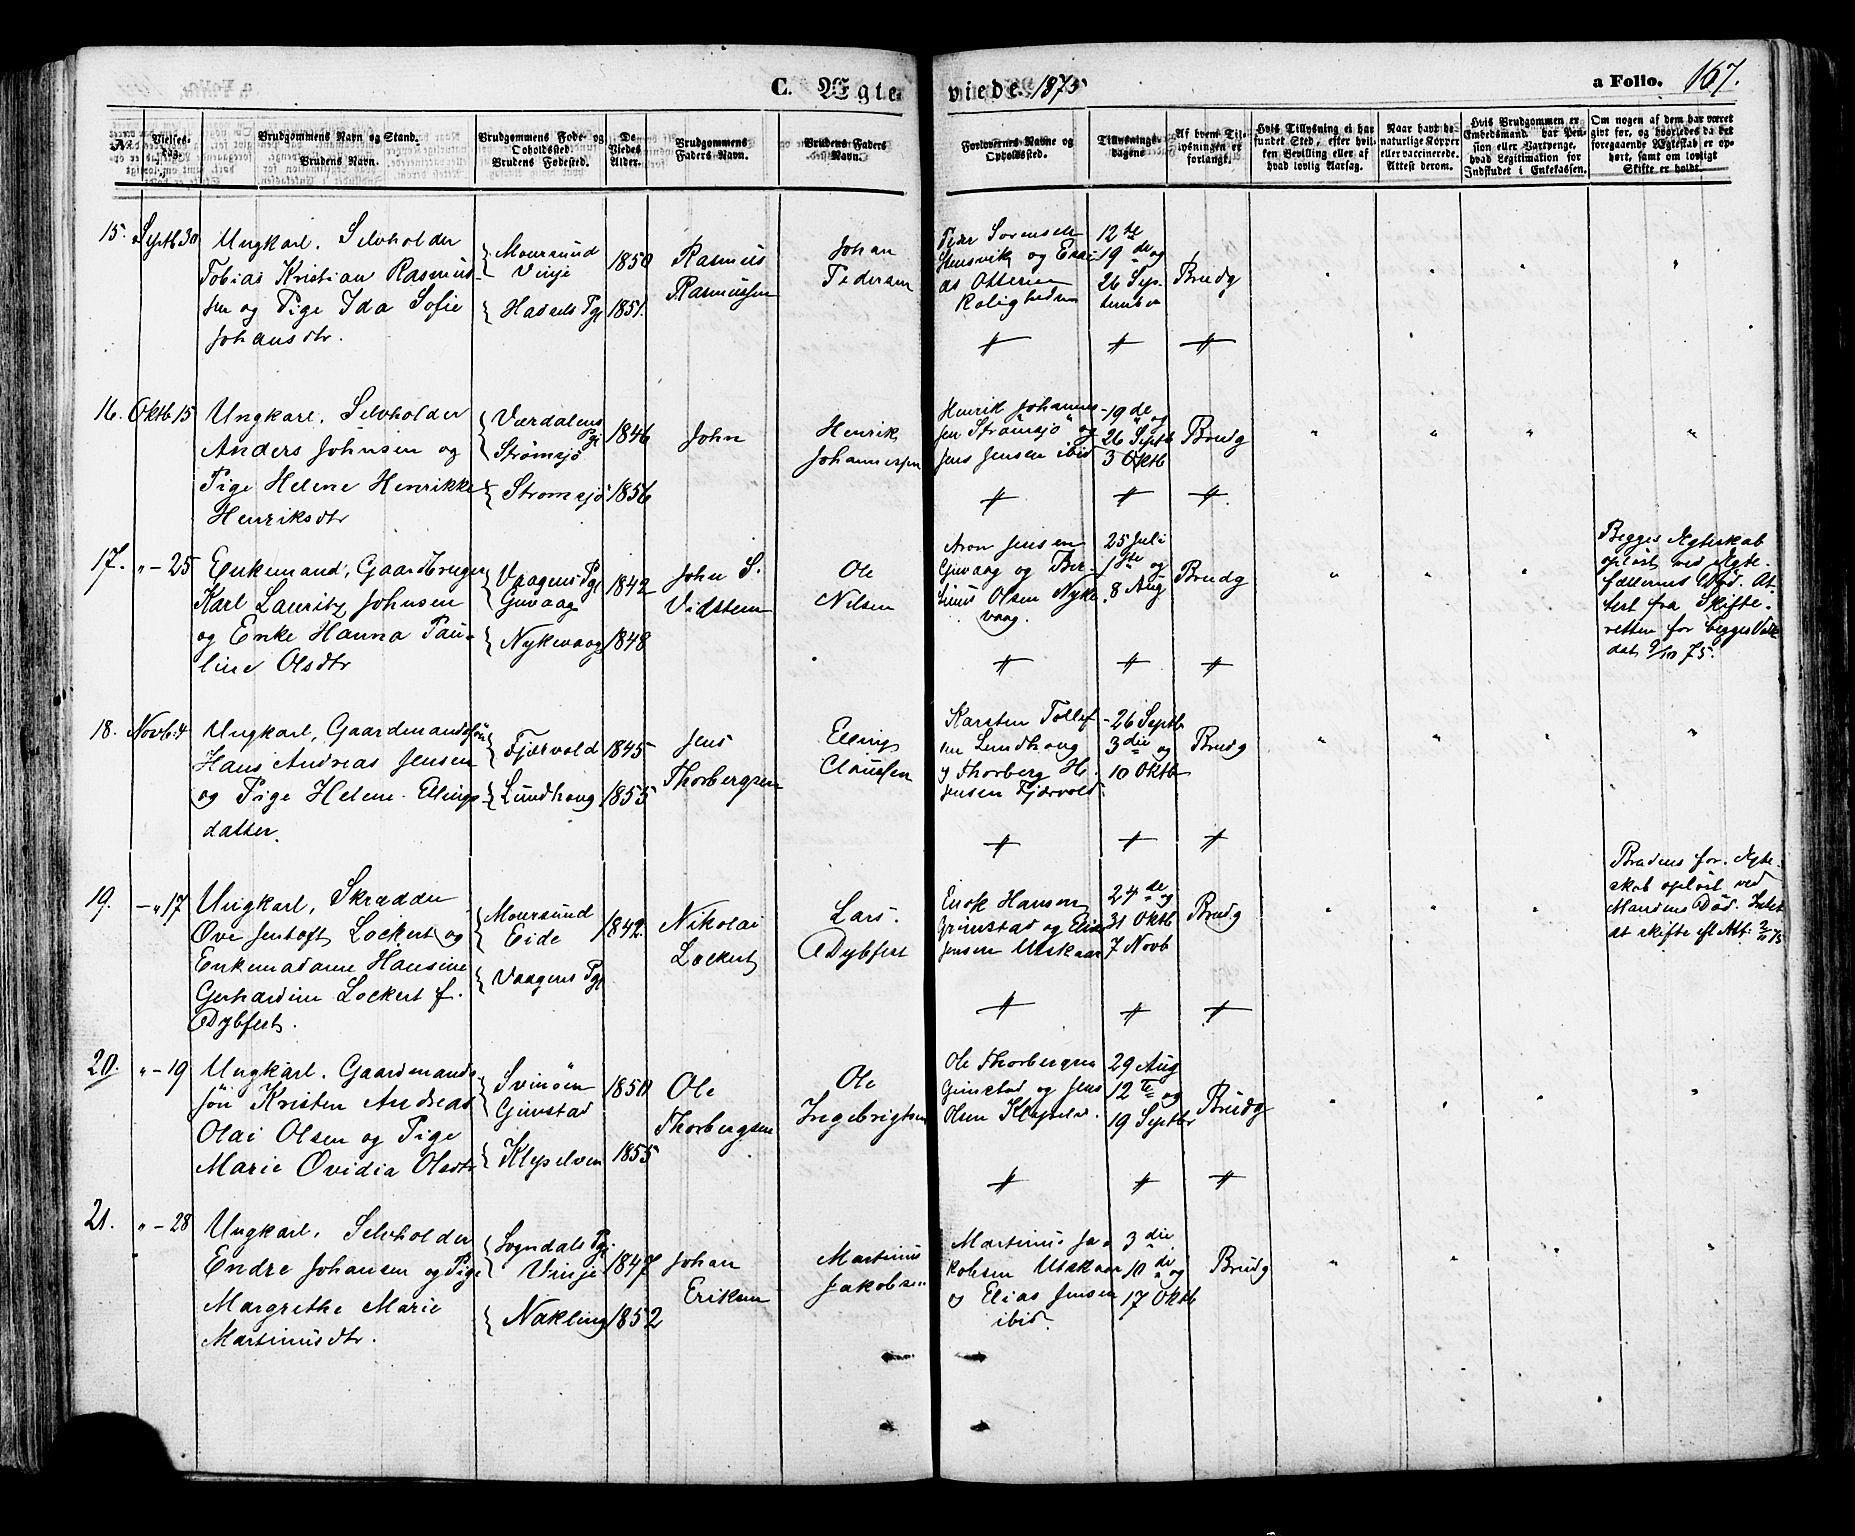 C. Ægteviede. 1875
a Folio. 167.
№
Vielses-
dag.
Brudgommens Navn og Stand.
Brudens Navn.
Brudgommens Føde- og
Opholdssted.
Brudens Fødested.
De
Viedes
Alder.
Brudgommens
Faders Navn.
Brudens Faders
Navn.
Forlovernes Navne og
Opholdssted.
Tillysnings-
dagene
Af hvem Til-
lysningen er
forlangt.
Hvis Tillysning ei har
fundet Sted, efter hvil-
ken Bevilling eller af
hvad lovlig Aarsag.
Naar havt de
naturlige Kopper
eller vaccinerede.
Attest derom.
Hvis Brudgommen er
Embedsmand, har Pen-
sion eller Vartpenge,
hvad Legitimation for
Indskudet i Enkekassen.
Om nogen af dem har været
givt før, og hvorledes da det
foregaaende Ægteskab er op-
hørt, samt om lovligt
Skifte er holdt.
15. Septb 30
Ungkarl, Selvholder
Tobias Kristian Rasmus-
sen og Pige Ida Sofie
Johansdtr.
Moursund
Vinje
Hadsels Pgj
1850
1851.
Rasmus
Rasmussen
Johan
Pedersen
Peder Sørensen
Stensvik og Esai-
as Ottesen
Roligheden
12te
19de og
26 Sep-
tember
Brudg
16. Oktb 15
Ungkarl, Selvholder
Anders Johnsen og
Pige Helene Henrikke
Henriksdtr
Værdalens
Pgj
Strømsjø
Strømsjø
1846
1856
John
Henrik
Johannessen
Henrik Johannes-
sen Strømsjø og
Jens Jensen ibid
19de og
26 Septb
3 Oktb
Brudg
17. " - 25
Enkemand, Gaardbruger
Karl Lauritz Johnsen
og Enke Hanna Pau-
line Olsdtr
Vaagens Pgj
Guvaag
Nykevaag
1842
1848
John S.
Vidstem
Ole
Nilsen
Aron Jensen
Guvaag og Ber-
Olsen Nyke-
vaag.
25 Juli
1ste og
8 Aug
Brudg
Begges Ægteskab
opløst ved Ægte-
fællernes Død. At-
test fra Skifte-
retten for begges
dat. 9/10 75.
18. Novb. 4
Ungkarl, Gaardmandssøn
Hans Andreas Jensen
og Pige Helene Ellings-
datter.
Fjærvold
Lundhaug
1845
1855
Jens
Thorbergsen
Elling
Claussen
Karsten Tollef-
sen Lundhaug
og Thorberg H.
Jensen Fjærvold.
26 Septb
3die og
10 Oktb
Brudg
19. - " 17
Ungkarl, Skrædder
Ove Jentoft Lockert og
Enkemadame Hansine
Gerhardine Lockert f.
Dybfest.
Moursund
Eide
Vaagens Pgj
1842.
Nikolai
Lockert
Lars
Dybfest
Erik Hansen
Grimstad og Elias
Jensen Utskaar
24de og
31 Oktb
7 Novb
Brudg
Brudens for. Ægte-
skab opløst ved
Mandens Død. Intet
at skifte efl Att.
20. " - 19
Ungkarl. Gaardmands-
søn Kristen Andreas
Olai Olsen og Pige
Marie Ovidia Olsdtr
Svinøen
Grimstad
Klypelven
1850
1855
Ole
Thorbergsen
Ole
Ingebrigtsen
Ole Thorbergsen
Grimstad og Jens
Olsen
29 Aug
12te og
19 Septbr
Brudg
21. " - 28
Ungkarl, Selvholder
Endre Johansen og Pige
Margrethe Marie
Martinusdtr.
Sogndals Pgj
Vinje
Nakling
1847
1852
Johan
Eriksen
Martinus
Jakobsen
Martinus Ja-
kobsen Utskaar
og Elias Jensen
ibid.
3die
10de og
17 Oktb
Brudg